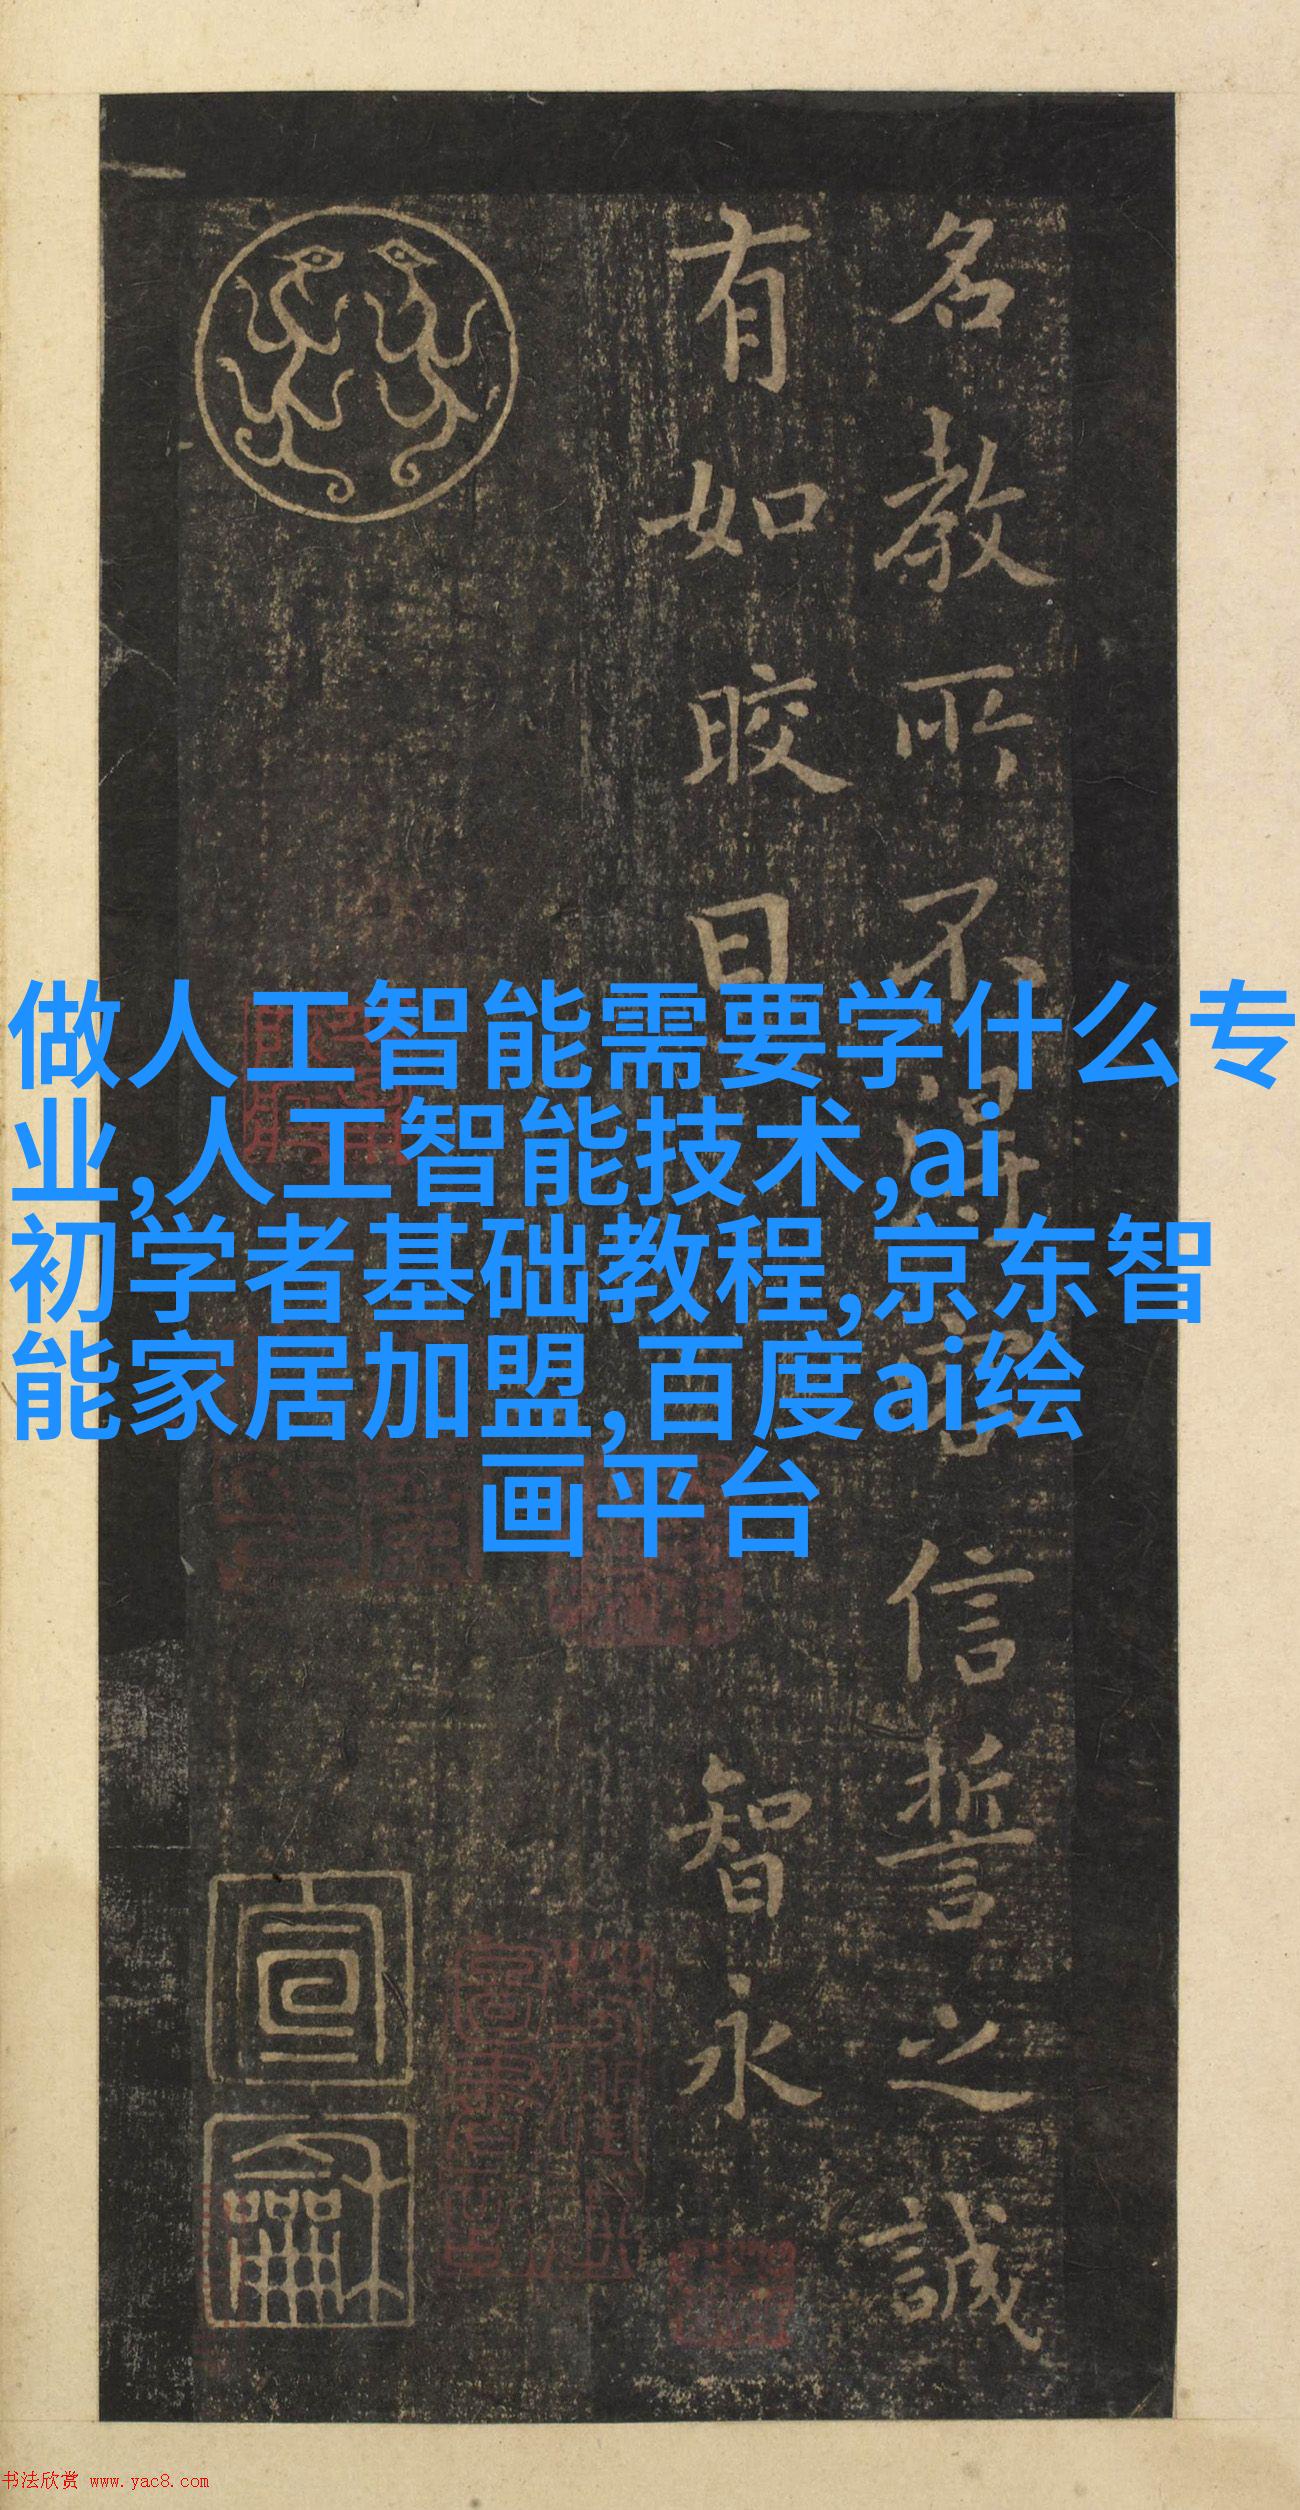 名教所不得容信誓之誠
有如晈日
智永
宣
龢
做人工智能需要学什么专
业,人工智能技术,ai
初学者基础教程,京东智
能家居加盟,百度ai绘
画平台
书法欣赏 www.yac8.com